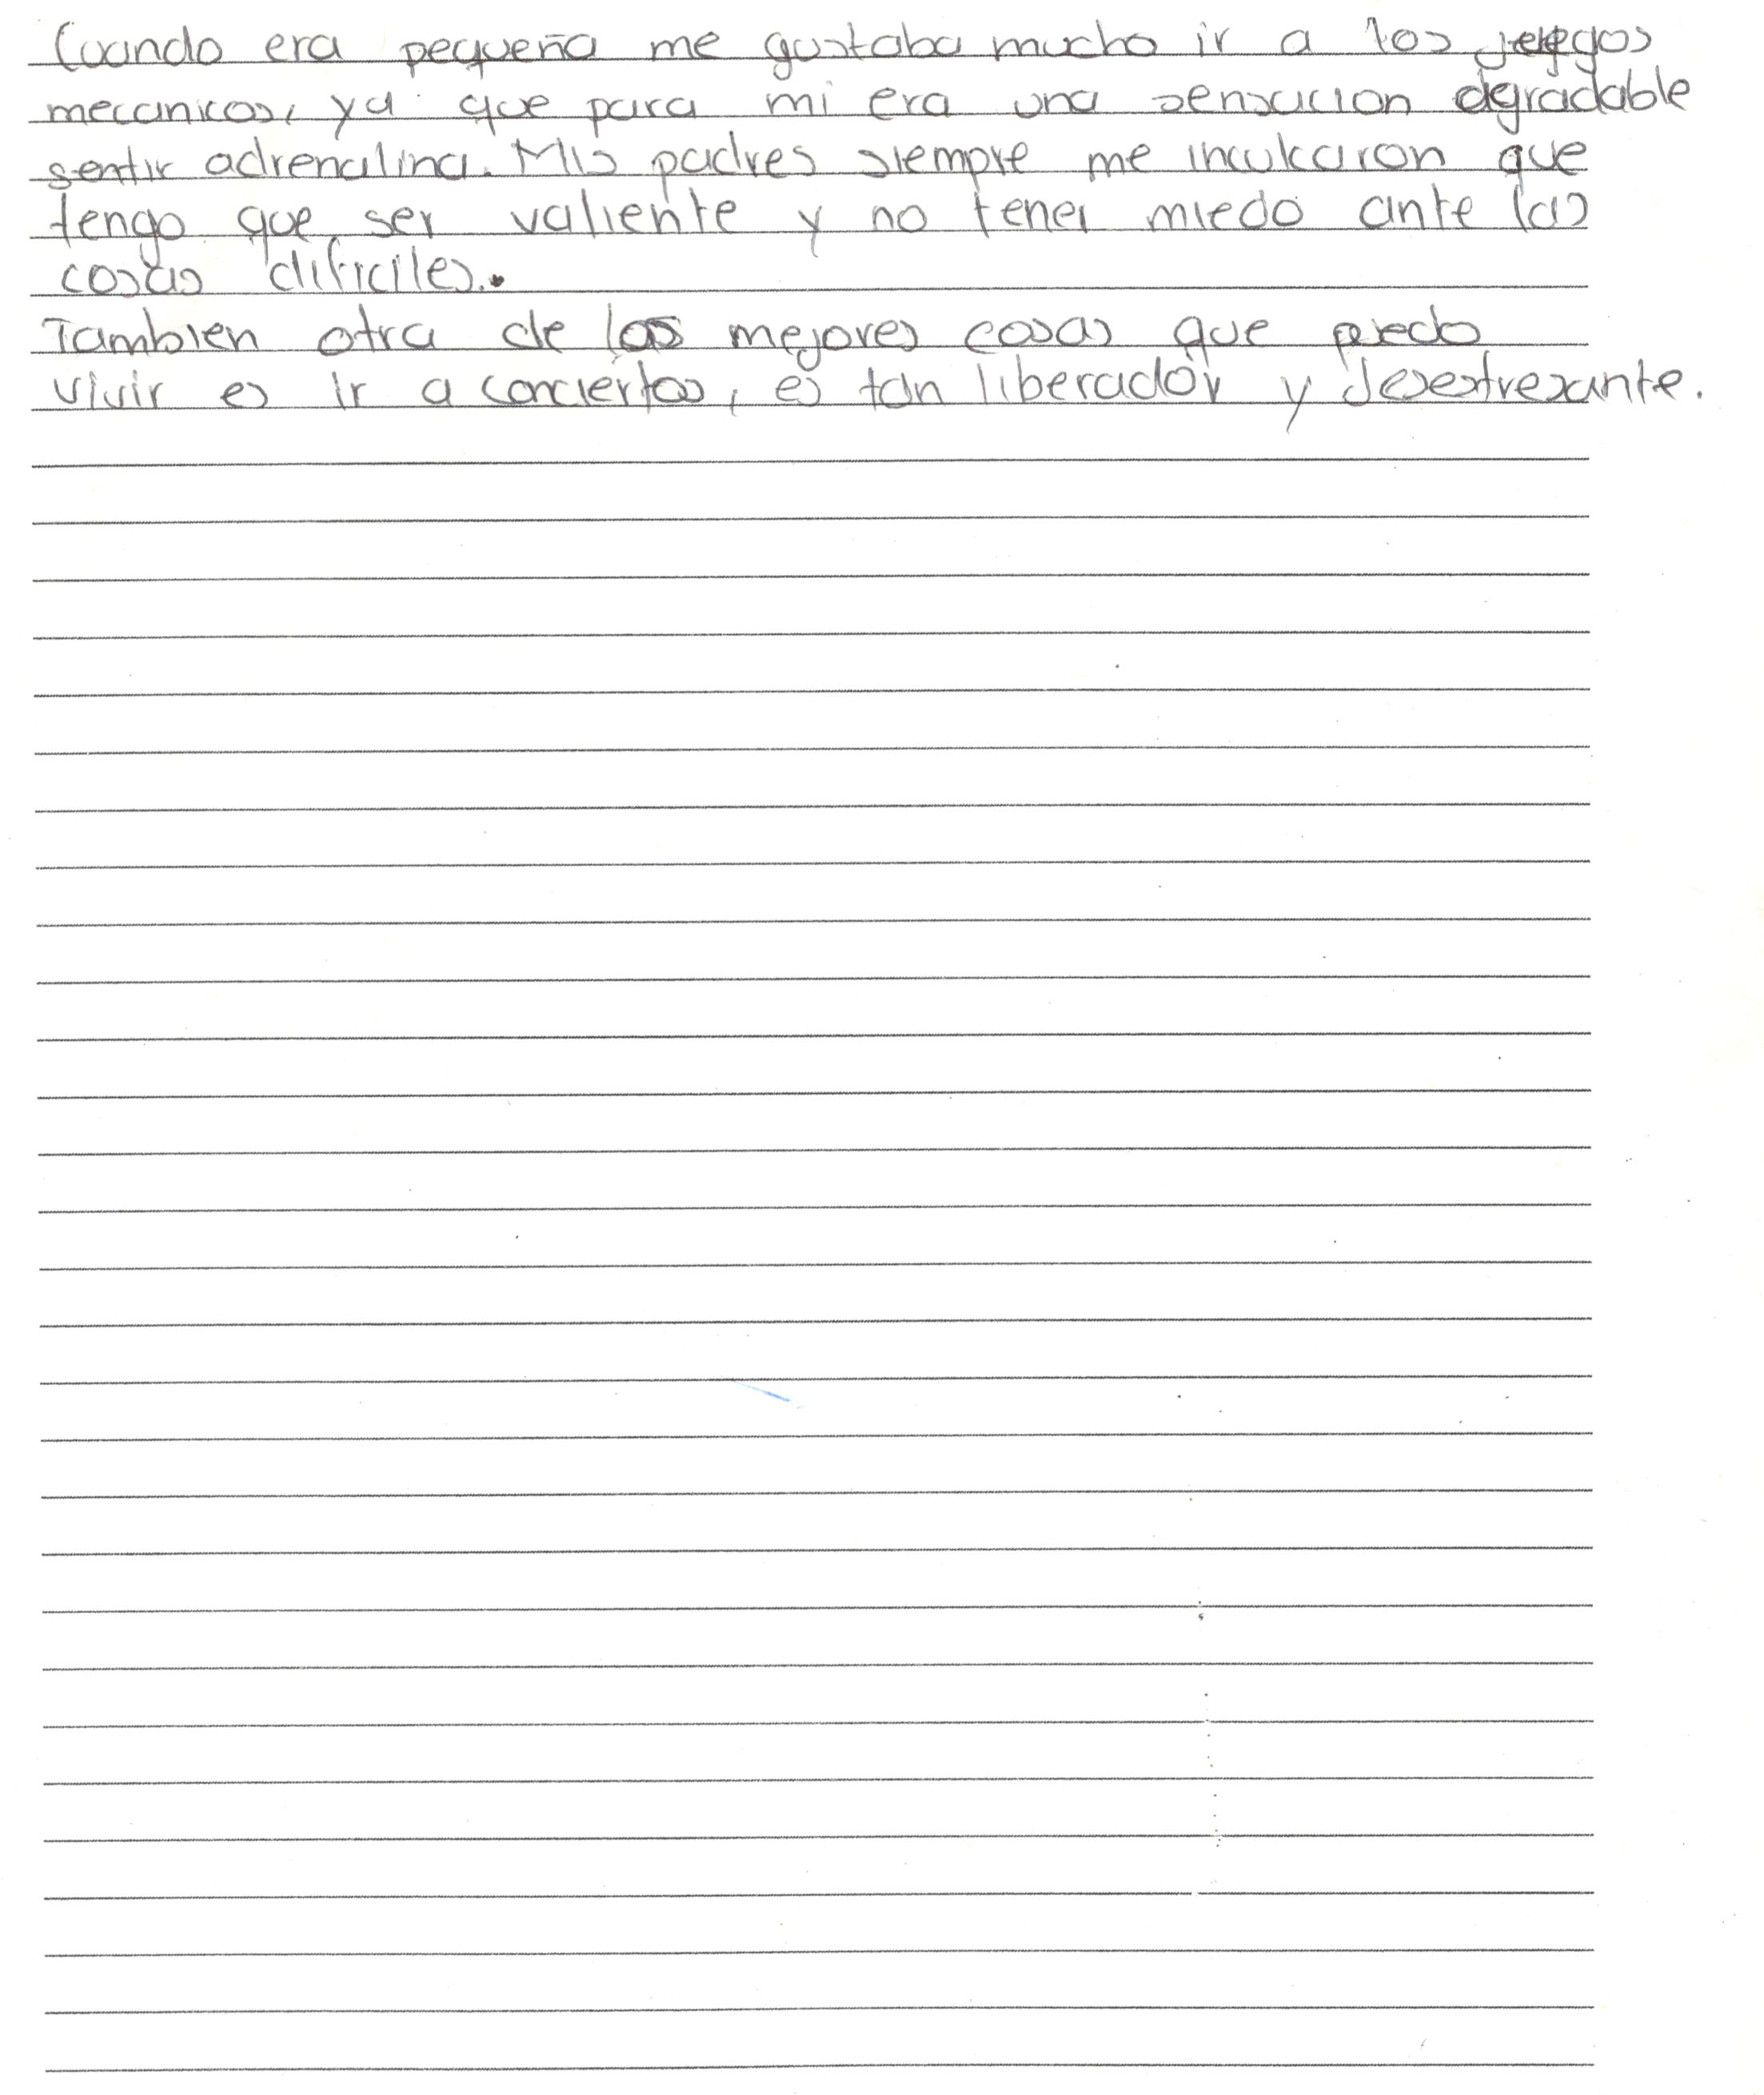 Cuando era pequeña me gustaba mucho ir a los juegos
mecanicos, ya que para mi era una sensacion agradable
sentir adrenalina. Mis padres siempre me inculcaron que
tengo que ser valiente y no tener miedo ante las
cosas dificiles.
Tambien otra de las mejores cosas que puedo
vivir es ir a conciertos, es tan liberador y desestresante.